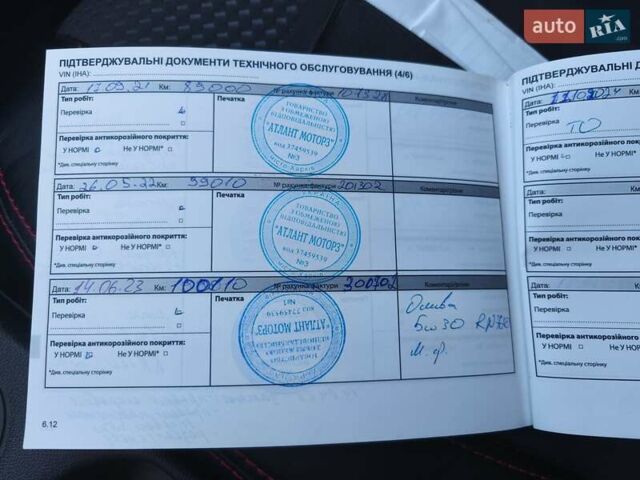 auto RIA
.com
ПІДТВЕРДЖУВАЛЬНІ ДОКУМЕНТИ ТЕХНІЧНОГО ОБСЛУГОВУВАННЯ (4/6)
VIN (ІНА):
Дата: 17.09.21 Км: 89000 № рахунка-фактури
Тип робіт: Печатка Коментарі/різне
Перевірка
Перевірка антикорозійного покриття:
У НОРМІ Не У НОРМІ*
*Див. спеціальну сторінку
ТОВАРИСТВО
З ОБМЕЖЕНОЮ
ВІДПОВІДАЛЬНІСТЮ
"АТЛАНТ МОТОРЗ"
код 37459539
№3
місто Харків
Дата: 26.05.22 Км: 99010 № рахунка-фактури 201302
Тип робіт: Печатка Коментарі/різне
Перевірка
Перевірка антикорозійного покриття:
У НОРМІ Не У НОРМІ*
*Див. спеціальну сторінку
УКРАЇНА
ТОВАРИСТВО
З ОБМЕЖЕНОЮ
ВІДПОВІДАЛЬНІСТЮ
"АТЛАНТ МОТОРЗ"
код 37459539
№3
Дата: 14.06.23 Км: 100110 № рахунка-фактури 300702
Тип робіт: Печатка Коментарі/різне
Перевірка
Перевірка антикорозійного покриття:
У НОРМІ Не У НОРМІ*
*Див. спеціальну сторінку
ТОВАРИСТВО
З ОБМЕЖЕНОЮ
ВІДПОВІДАЛЬНІСТЮ
"АТЛАНТ МОТОРЗ"
код 37459539
Олива
5w30
м.ф.
6.12
ПІДТВЕРДЖУВАЛЬНІ
VIN (ІНА):
Дата:
Тип робіт:
Перевірка ТО
Перевірка антикорозійного покриття:
У НОРМІ Не У НОРМІ*
*Див. спеціальну сторінку
Дата:
Тип робіт:
Перевірка
Перевірка антикорозійного
У НОРМІ Не У НОРМІ*
*Див. спеціальну сторінку
Дата:
Тип робіт:
Перевірка
Перевірка антикорозійного
У НОРМІ Не У НОРМІ*
*Див. спеціальну сторінку